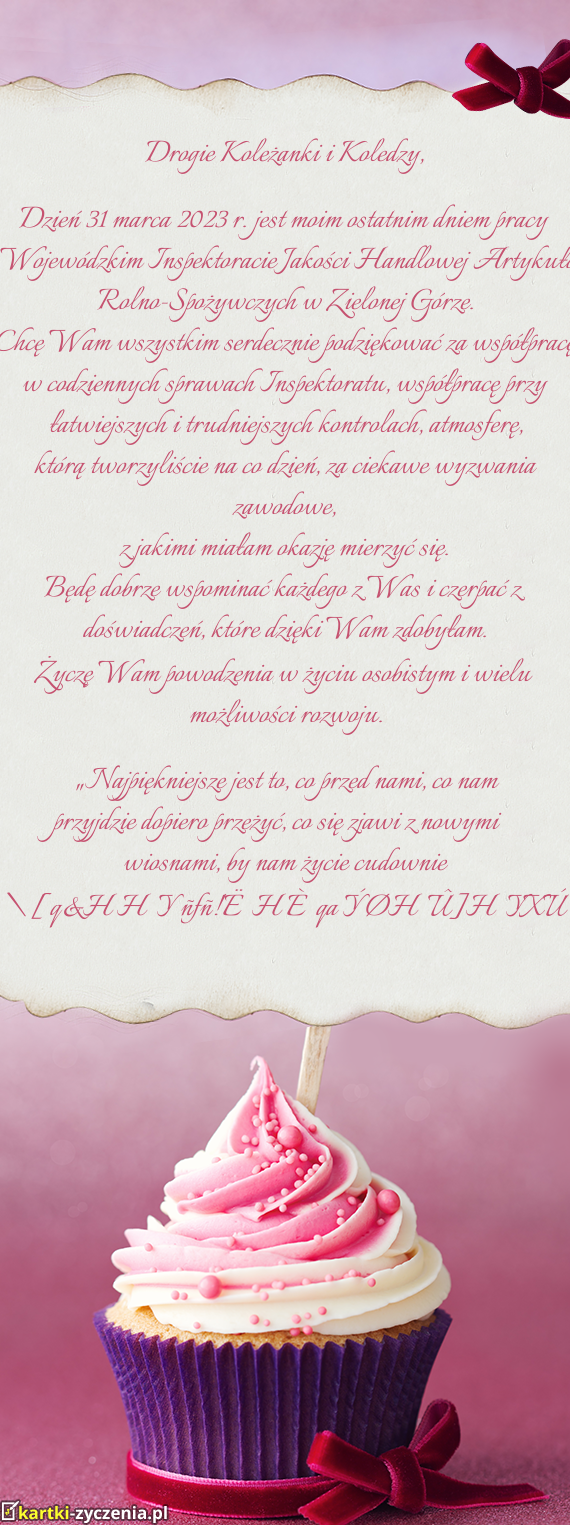 Drogie Koleżanki i Koledzy,
Dzień 31 marca 2023 r. jest moim ostatnim dniem pracy
Wojewódzkim Inspektoracie Jakości Handlowej Artykułó
Rolno-Spożywczych w Zielonej Górze.
Chcę Wam wszystkim serdecznie podziękować za współpracę
w codziennych sprawach Inspektoratu, współpracę przy
łatwiejszych i trudniejszych kontrolach, atmosferę,
którą tworzyliście na co dzień, za ciekawe wyzwania
zawodowe,
z jakimi miałam okazję mierzyć się.
Będę dobrze wspominać każdego z Was i czerpać z
doświadczeń, które dzięki Wam zdobyłam.
Życzę Wam powodzenia w życiu osobistym i wielu
możliwości rozwoju.
„Najpiękniejsze jest to, co przed nami, co nam
przyjdzie dopiero przeżyć, co się zjawi z nowymi
wiosnami, by nam życie cudownie
\ [ q&H H Y ñfñ!'Ë H È qa ÝØH Û]H YXÚ
kartki-zyczenia.pl